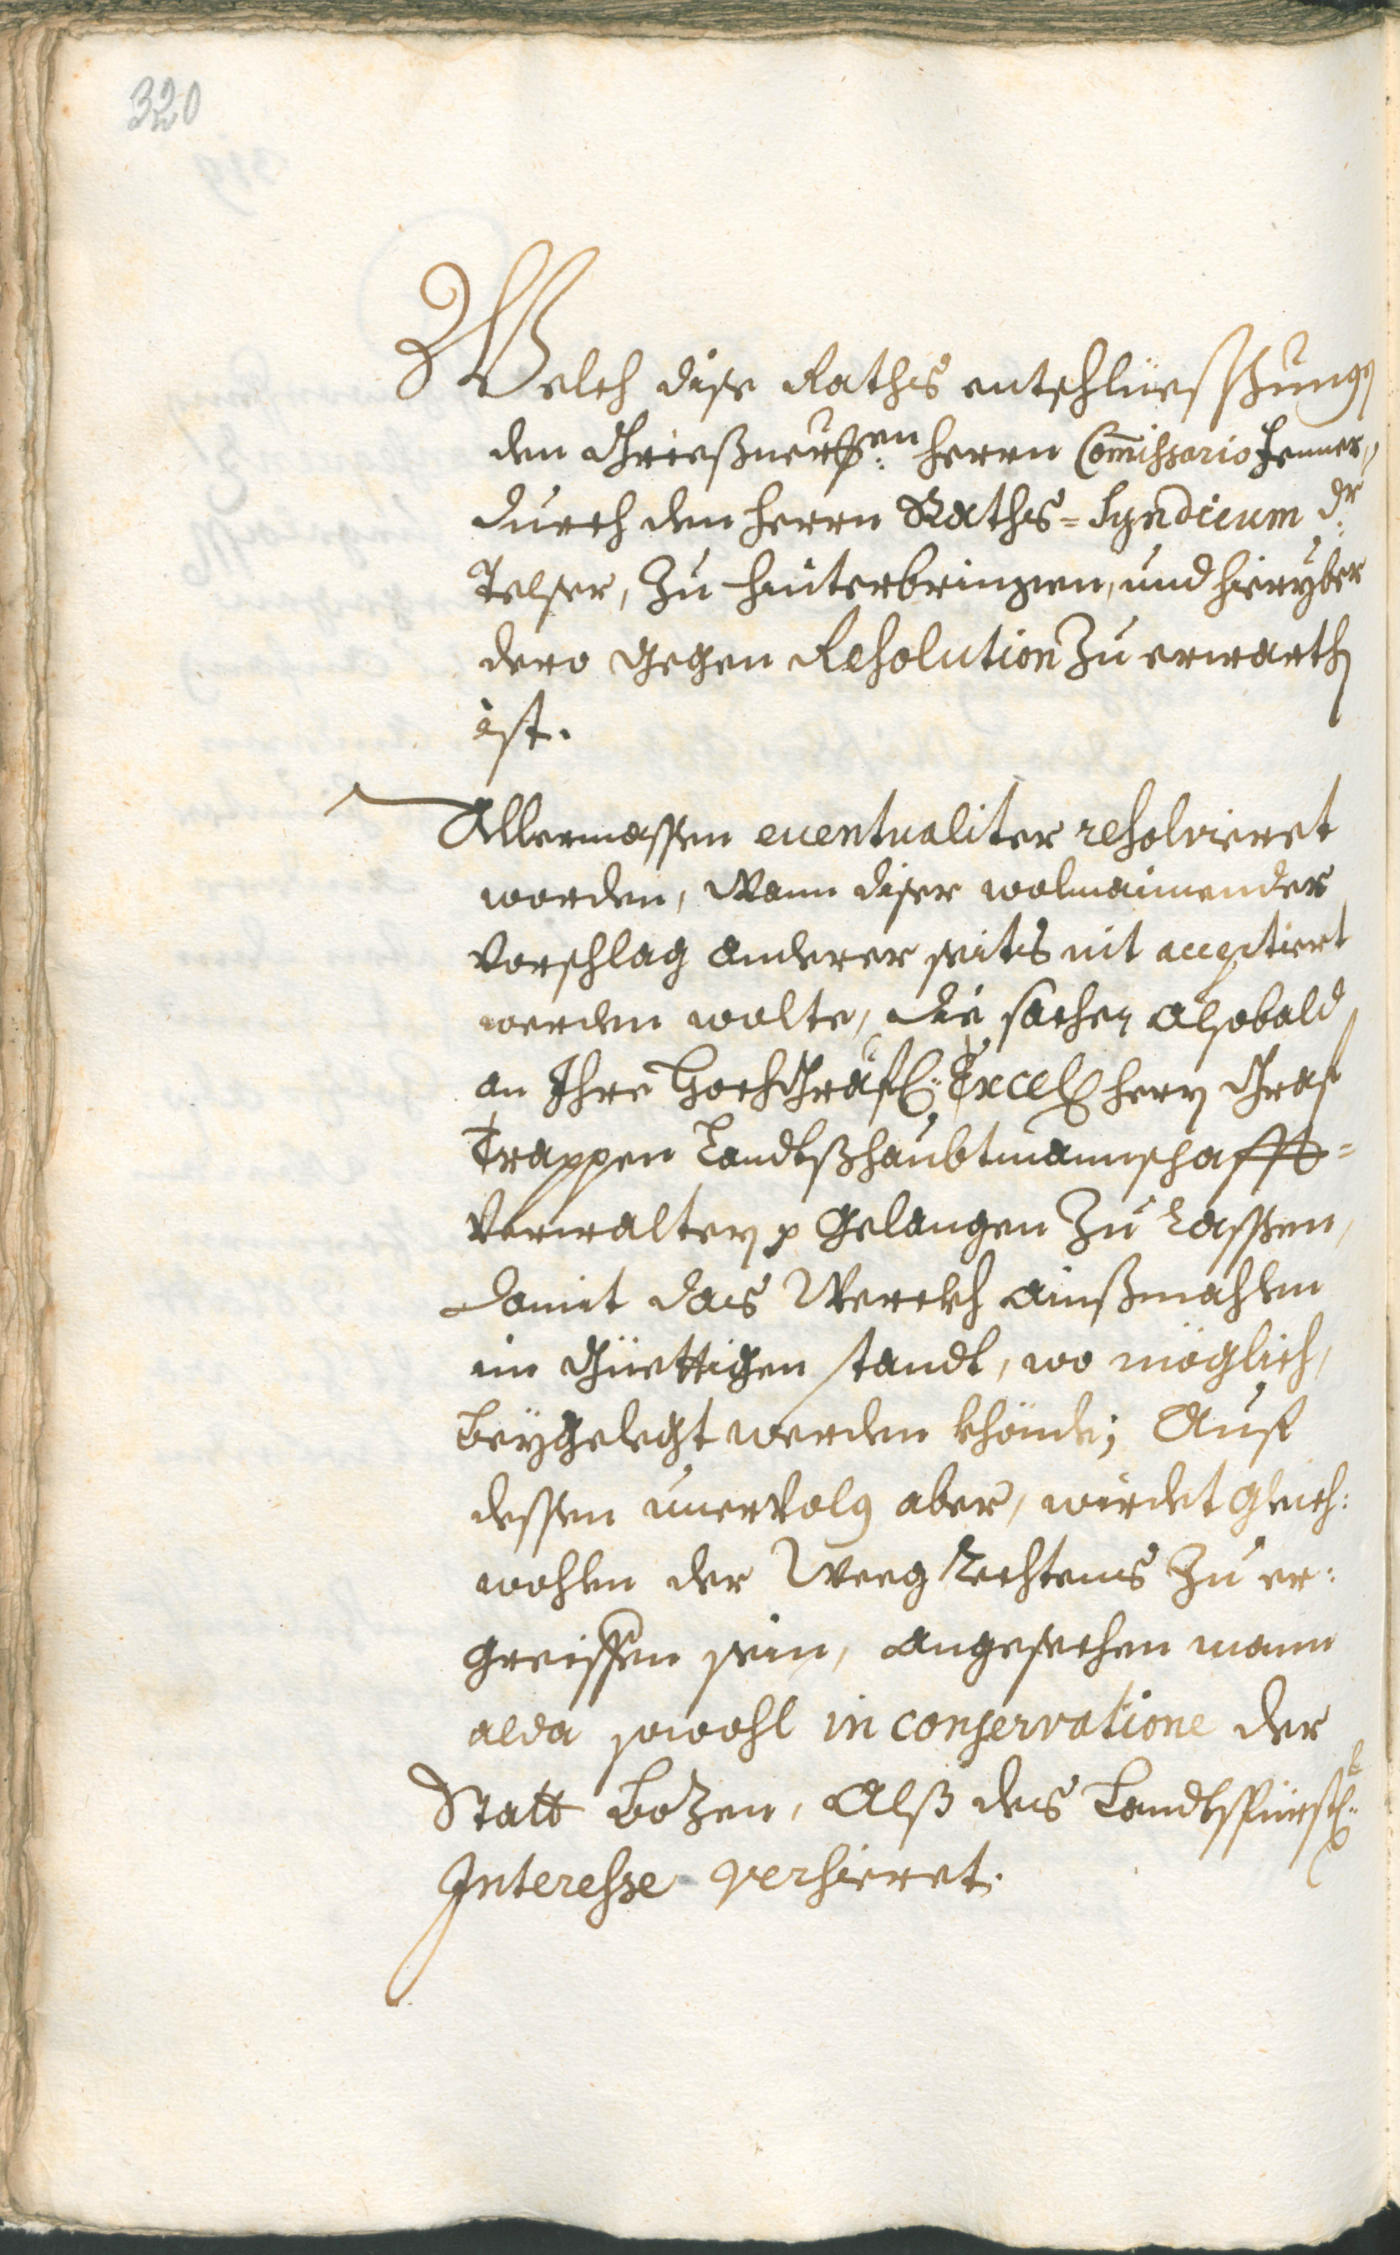 320
Welch dise Raths entschliessung
den Griessnerischen herrn Commissario Jenner,
durch den herrn Raths=Syndicum Dr:
Telser, zu hinterbringen, und hieryber
dero gegen Resolution zu erwarth
ist.
Allermassen euentualiter resolvieret
worden, Wann diser wolmainender
vorschlag anderer seits nit acceptiert
werden wolte, die sachen alsobald
an Ihre Hochgräfl: Excell: herrn Graf
Trappen Landtßhaubtmannschafft=
Verwaltern p gelangen zu lassen,
damit das Werckh ainßmahlen
im Güettigen standt, wo möglich,
beygelegt werden khönde; Auf
dessen unervolg aber, wirdet gleich:
wohlen der Weeg Rechtens zu er:
greiffen sein, angesechen mann
alda sowohl in conservatione der
Statt Bozen, Alß des Landtsfürstl:
Interesse versieret.